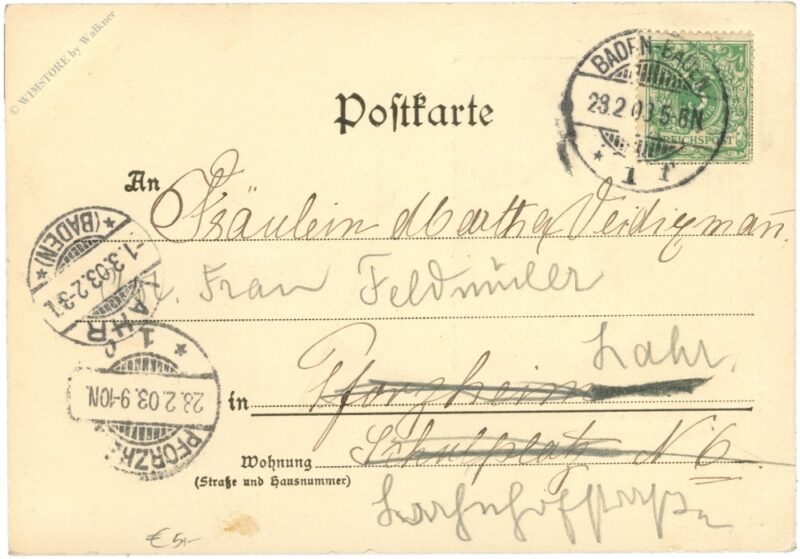 © WIMSTORE by Walkner
BADEN-BADEN
28.2.03.5-6N
* 1 r
REICHSPOST
Poſtkarte
An
Fräulein Martha
p. Frau Feldmüller
* (BADEN) *
-1.3.03.2-3
LAHR
Lahr.
in Pforzheim
* 1
28.2.03.9-10N
PFORZH
Wohnung Schulplatz N 6
(Straße und Hausnummer)
Bahnhofstraße
€ 5,-